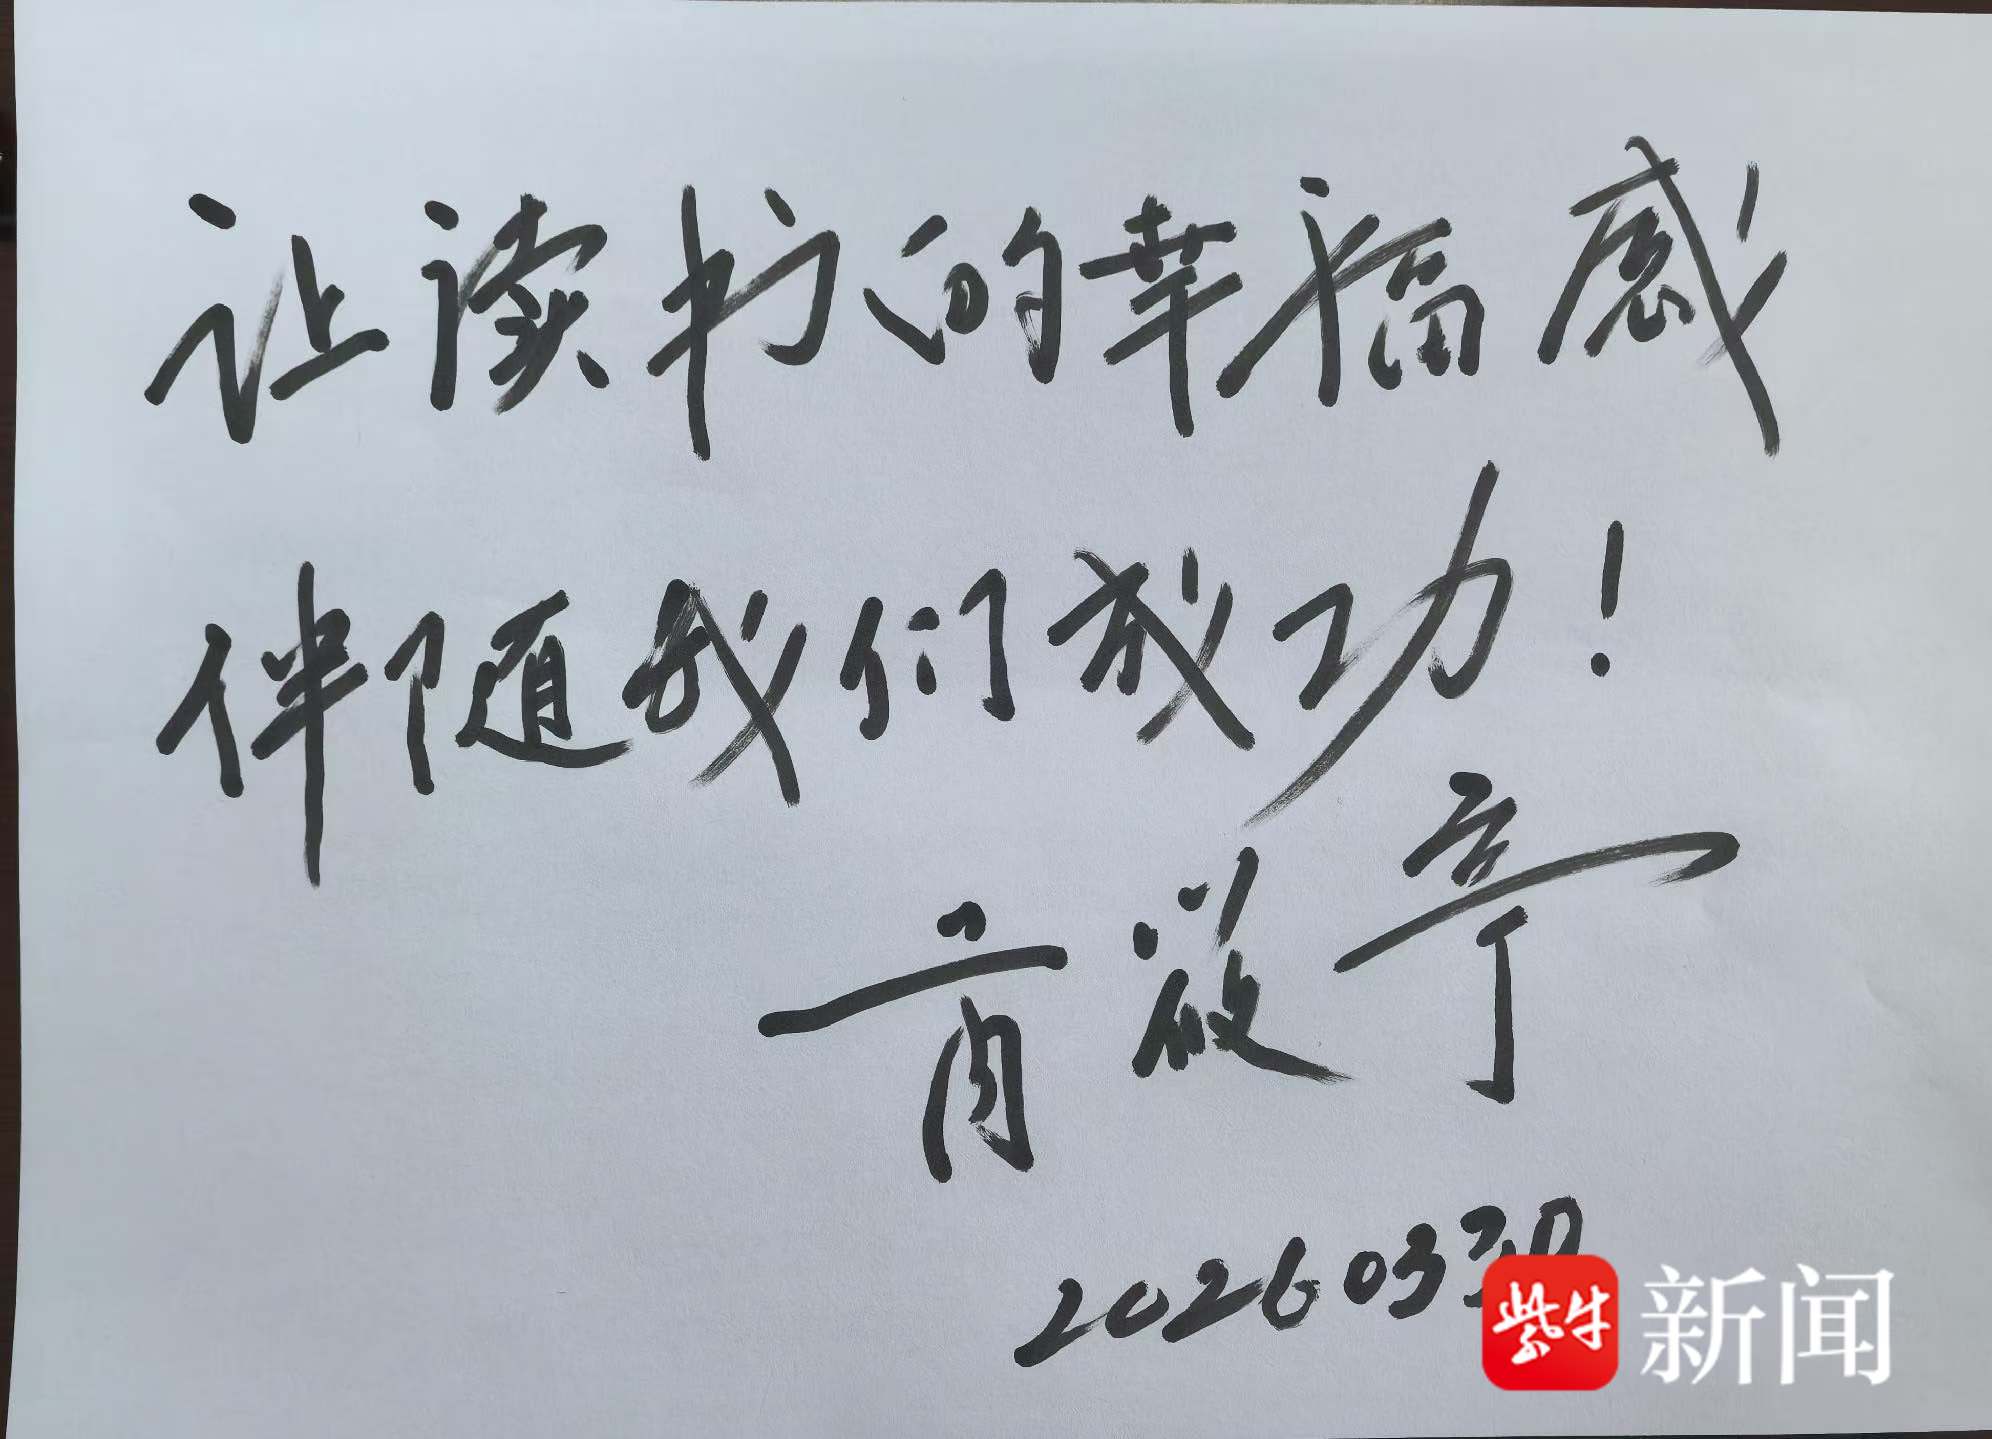 让读书的幸福感
伴随我们成功！
20260330
紫牛新闻